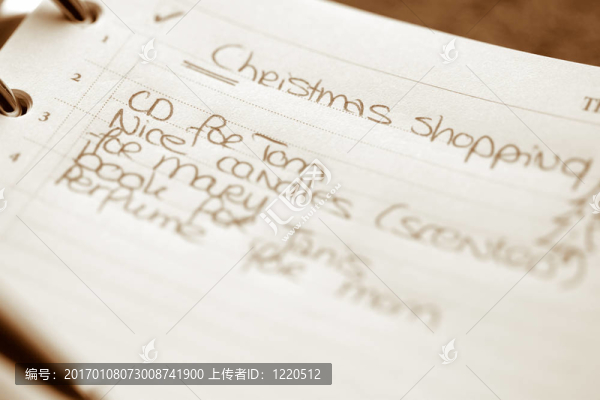 Christmas shopping
1
2
3
4
Th
CD for Tony
Nice candles (scented)
for mary
book for Janis
Perfume for mom
编号：20170108073008741900 上传者ID：1220512